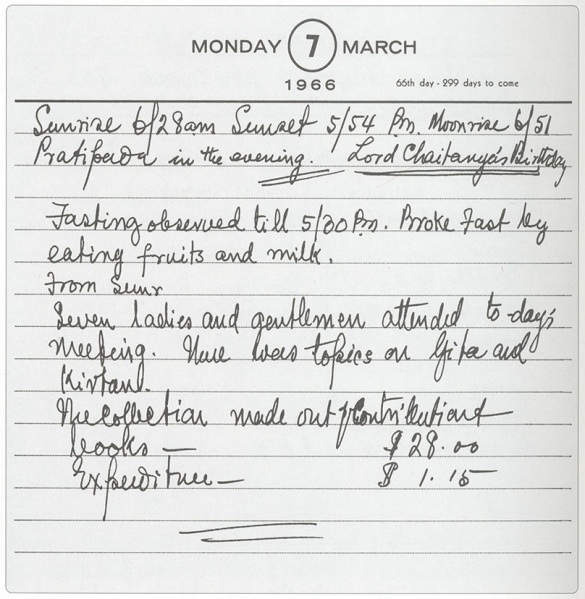 MONDAY 7 MARCH
1966 66th day - 299 days to come
Sunrise 6/28am Sunset 5/54 Pm. Moonrise 6/51
Pratipada in the evening. Lord Chaitanya's Birthday
Fasting observed till 5/30 Pm. Broke Fast by
eating fruits and milk.
From Sunr
Seven ladies and gentlemen attended to-day's
meeting. There was topics on Gita and
Kirtan.
The collection made out of Contribution &
books — $ 28.00
Expenditure — $ 1.15